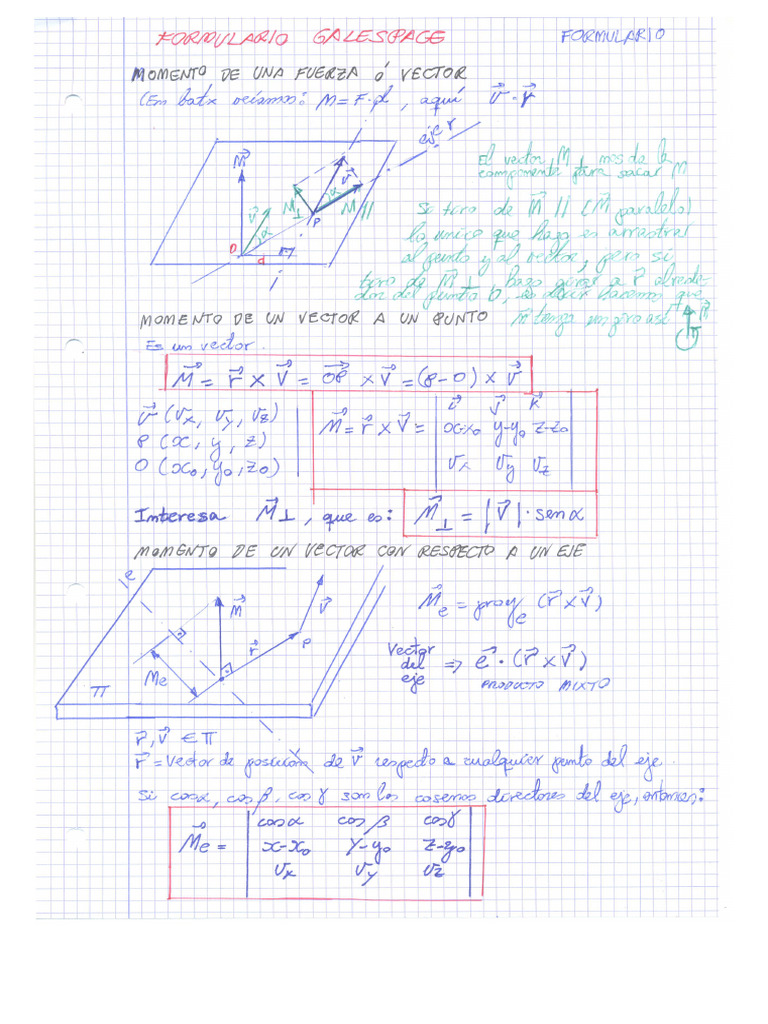 FORMULARIO GALESPACE FORMULARIO
MOMENTO DE UNA FUERZA ó VECTOR
(En batx veíamos: M = F·d, aquí v⃗·r⃗
eje r
El vector M⊥ nos da la
componente para sacar M
M⃗
v⃗
v⃗
α
α
M⊥
M∥
P
O
d
Si tiro de M⃗ ∥ (M⃗ paralelo)
lo unico que hago es arrastrar
al punto y al vector, pero si
tiro de M⃗⊥ hago girar a P alrede-
dor del punto O, es decir hacemos que
MOMENTO DE UN VECTOR A UN PUNTO M⃗ tenga un giro así
Es un vector.
M⃗ = r⃗ × V⃗ = OP⃗ × V⃗ = (P-O) × v⃗
v⃗ (vx, vy, vz)
P (x, y, z)
O (x0, y0, z0)
M⃗ = r⃗ × V⃗ =
i⃗ j⃗ k⃗
x-x0 y-y0 z-z0
vx vy vz
Interesa M⃗⊥, que es: M⃗⊥ = |V⃗|·senα
MOMENTO DE UN VECTOR CON RESPECTO A UN EJE
e
M⃗
v⃗
r⃗
P
Me
π
M⃗e = proy e (r⃗ × V⃗)
Vector
del
eje
⇒ e⃗·(r⃗ × V⃗)
PRODUCTO MIXTO
P, V⃗ ∈ π
r⃗ = Vector de posición de v⃗ respecto a cualquier punto del eje.
Si cosα, cosβ, cosγ son los cosenos directores del eje, entonces:
M⃗e =
cosα cosβ cosγ
x-x0 y-y0 z-y0
vx vy vz